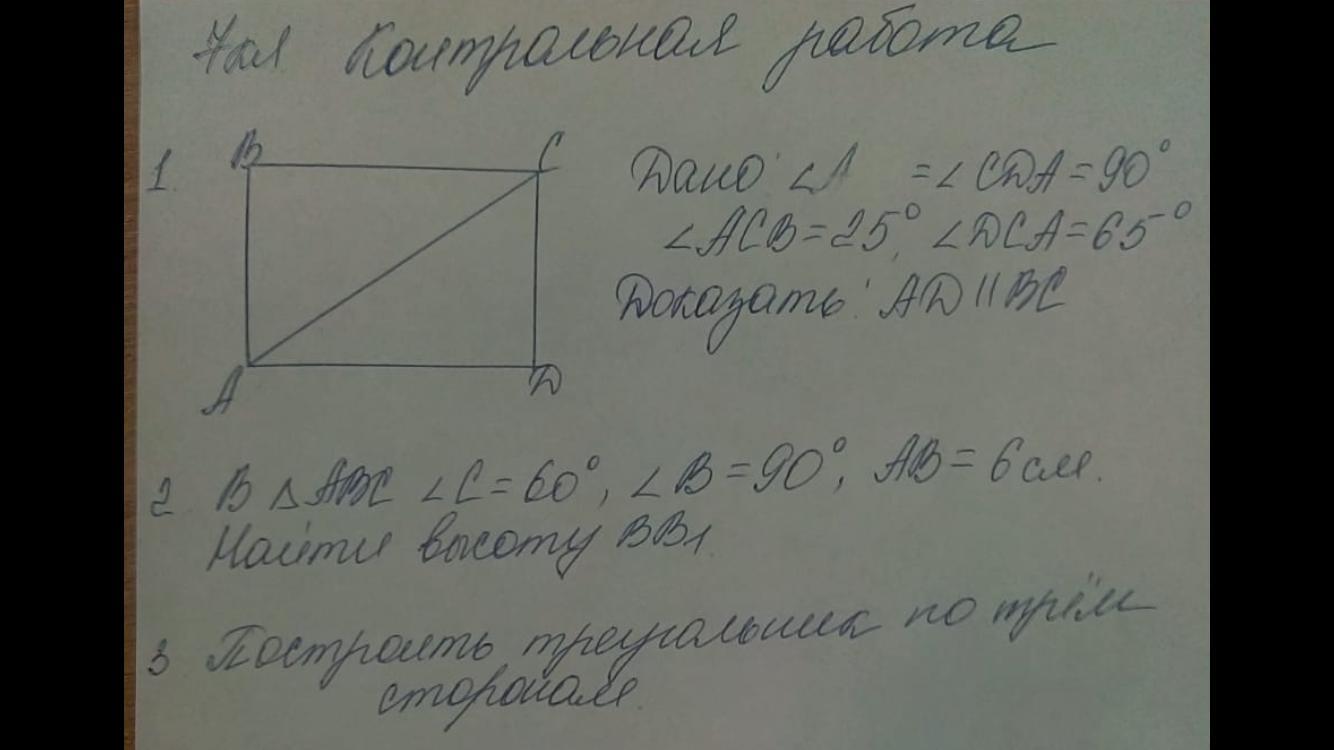 7 кл Контрольная работа
1.
B
C
A
D
Дано: ∠A = ∠CDA = 90°
∠ACB = 25°, ∠DCA = 65°
Доказать: AD || BC
2 В △ABC ∠C = 60°, ∠B = 90°, AB = 6 см.
Найти высоту BB₁
3 Построить треугольник по трём
сторонам.